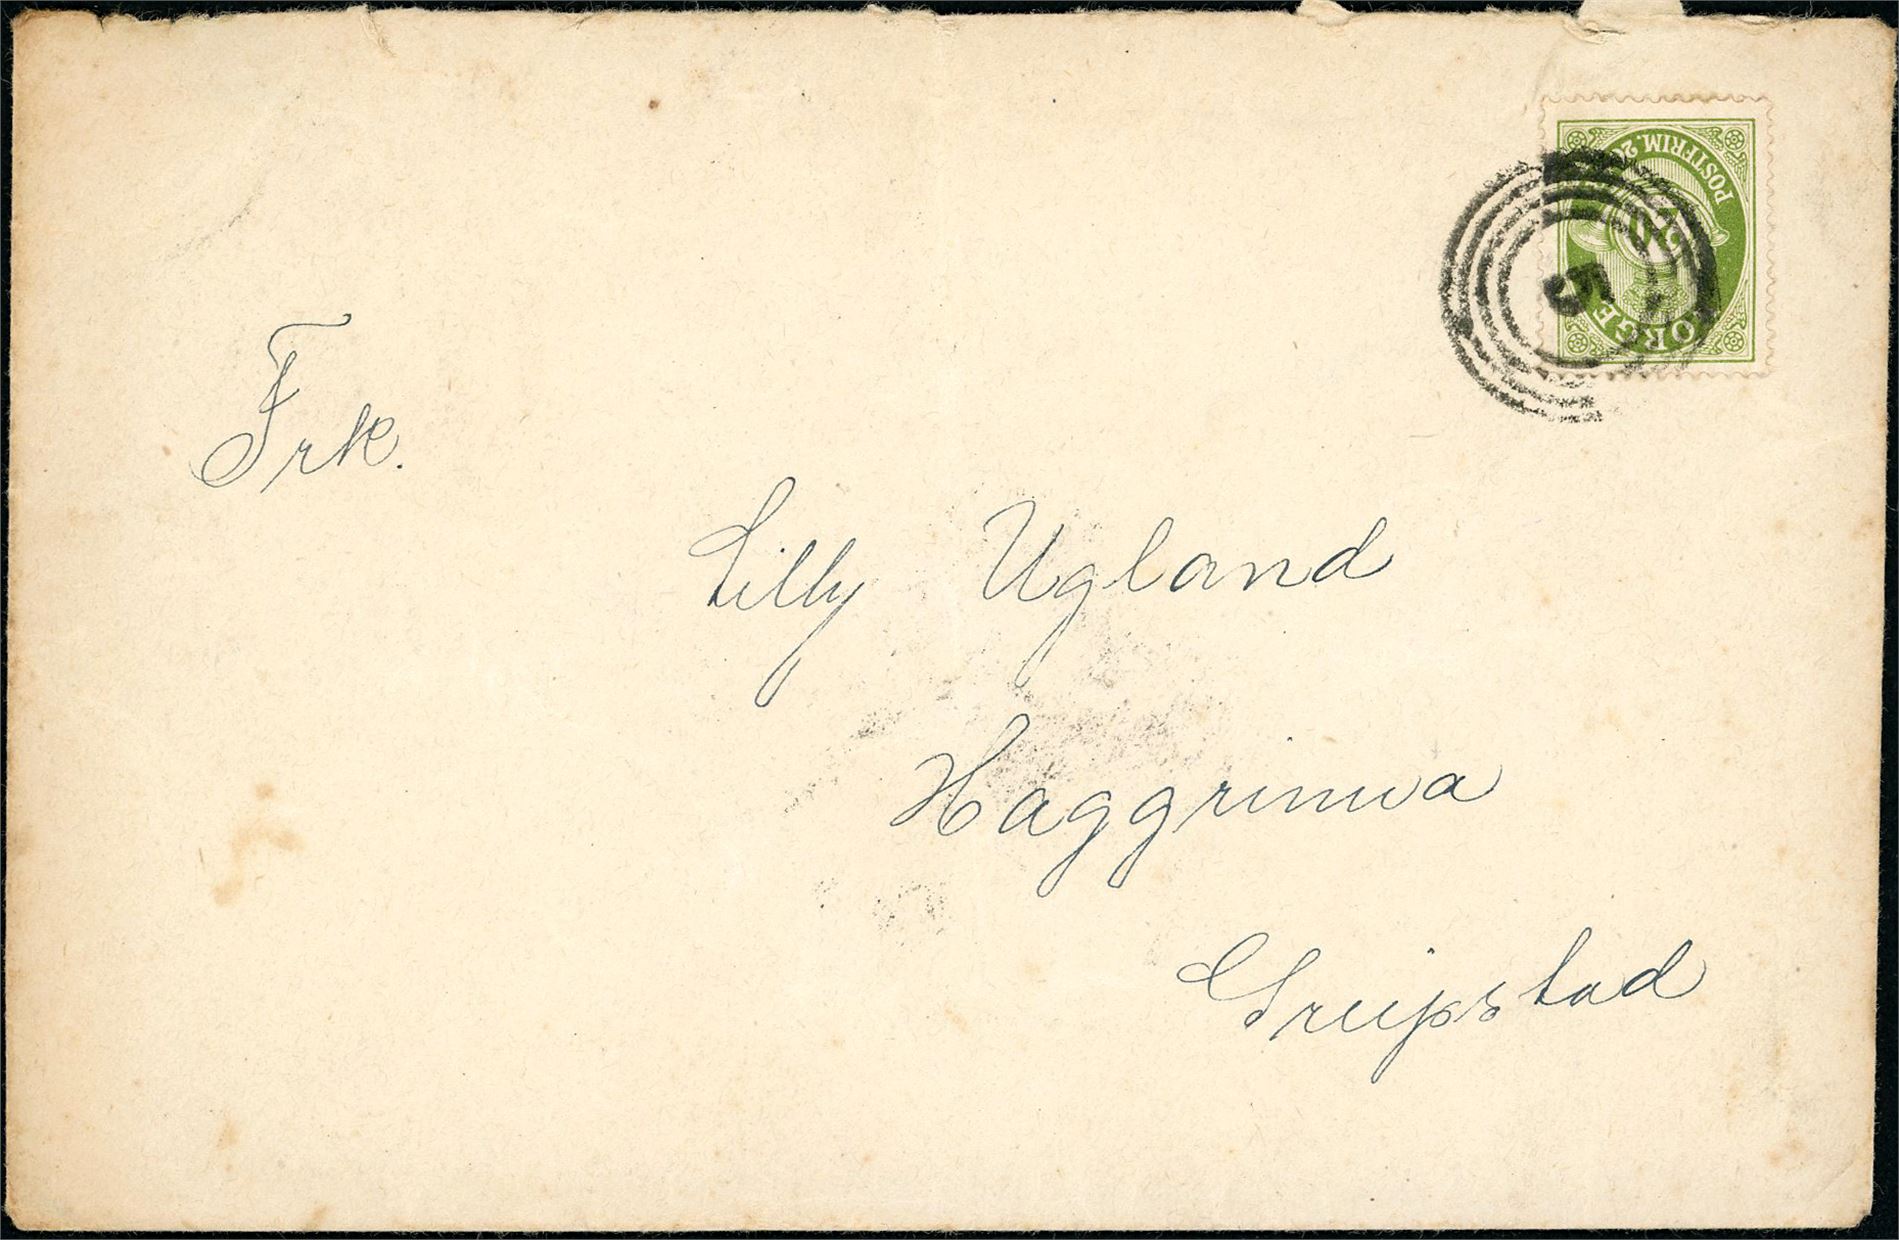 NORGE
POSTFRIM. 20
20
5
Frk.
Lilly Ugland
Haggrinna
Greipstad